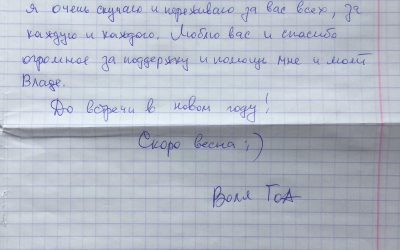 Я очень скучаю и переживаю за вас всех, за
каждую и каждого. Люблю вас и спасибо
огромное за поддержку и помощь мне и моей
Владе.
До встречи в новом году!
Скоро весна ;)
Воля ГоА